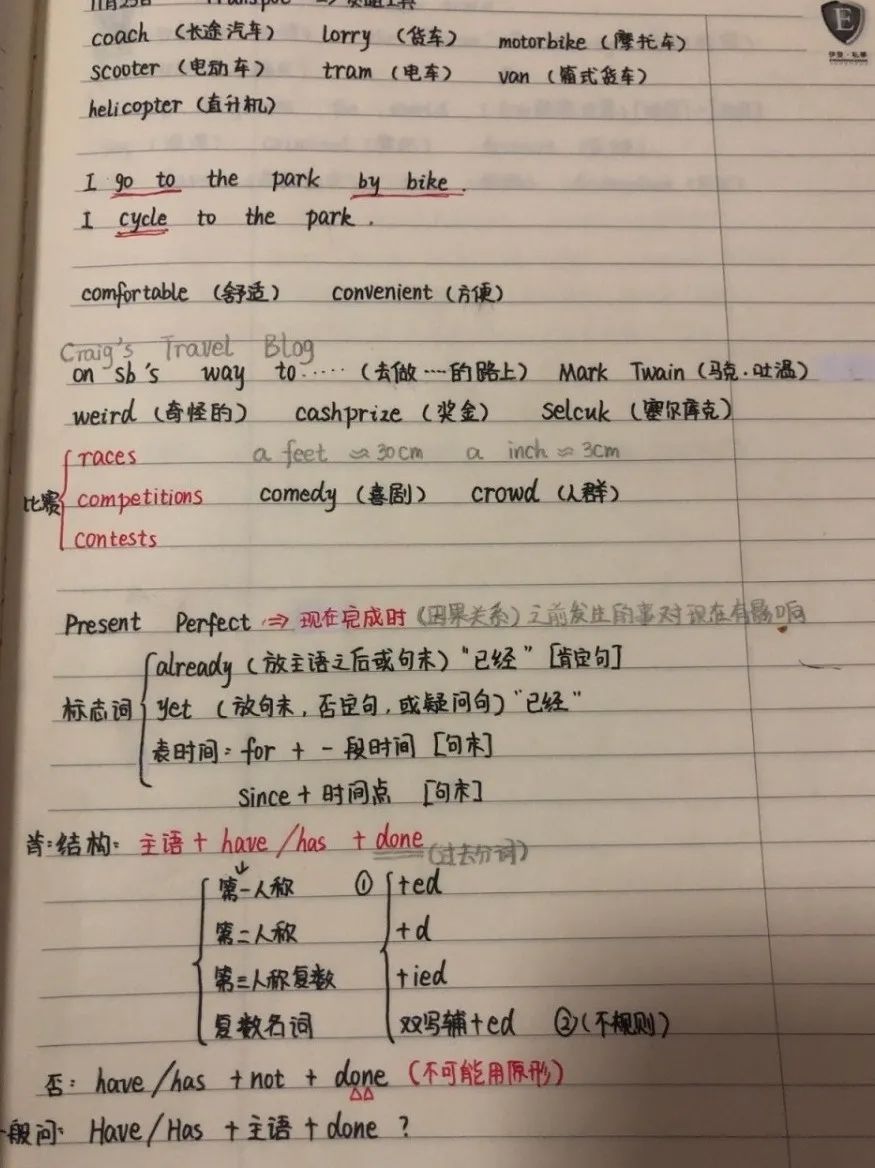 11月25日 Transpot => 交通工具
coach (长途汽车) lorry (货车) motorbike (摩托车)
scooter (电动车) tram (电车) van (箱式货车)
helicopter (直升机)
I go to the park by bike.
I cycle to the park.
comfortable (舒适) convenient (方便)
Craig's Travel Blog
on sb's way to······ (去做···的路上) Mark Twain (马克·吐温)
weird (奇怪的) cashprize (奖金) Selcuk (塞尔库克)
比赛
races a feet ≈30cm a inch ≈ 3cm
competitions comedy (喜剧) crowd (人群)
contests
Present Perfect => 现在完成时 (因果关系) 之前发生的事对现在有影响
already (放主语之后或句末) "已经" [肯定句]
标志词 yet (放句末, 否定句, 或疑问句) "已经"
表时间: for + 一段时间 [句末]
since + 时间点 [句末]
肯: 结构: 主语 + have/has + done (过去分词)
↓
第一人称 ① +ed
第二人称 +d
第三人称复数 +ied
复数名词 双写辅+ed ②(不规则)
否: have/has +not + done (不可能用原形)
一般问: Have/Has +主语 + done ?
E